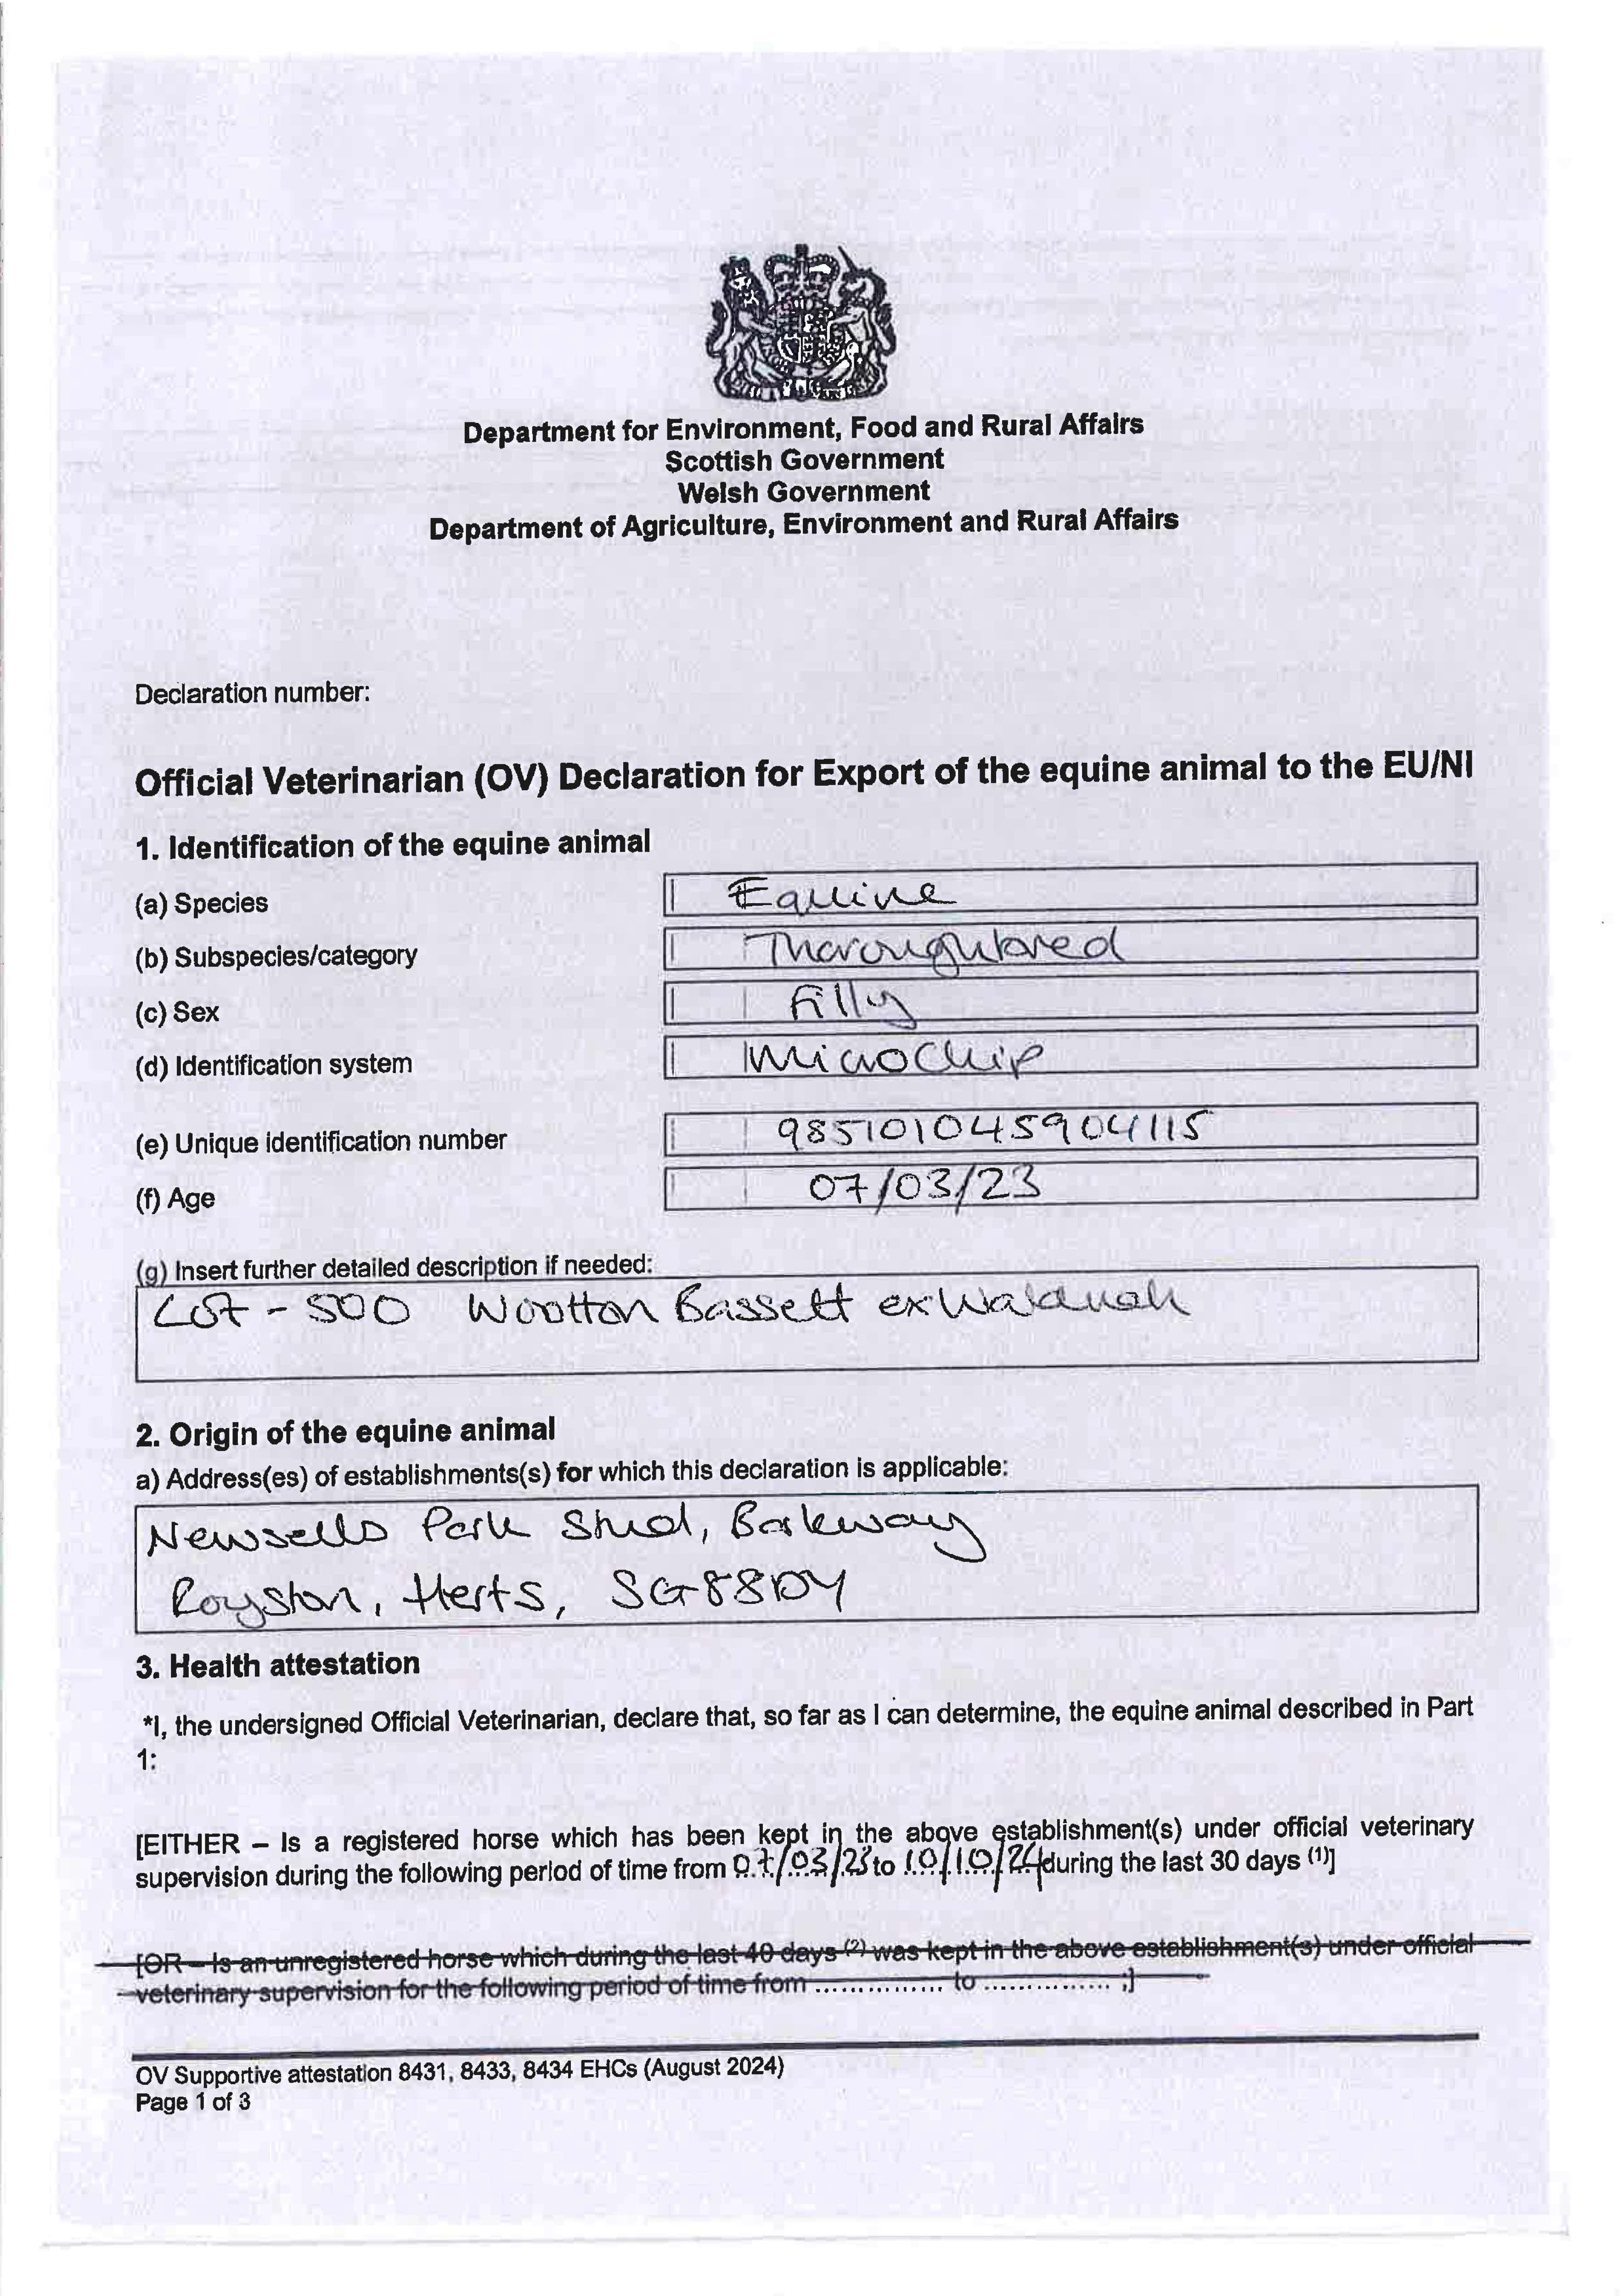 Department for Environment, Food and Rural Affairs
Scottish Government
Welsh Government
Department of Agriculture, Environment and Rural Affairs
Declaration number:
Official Veterinarian (OV) Declaration for Export of the equine animal to the EU/NI
1. Identification of the equine animal
(a) Species Equine
(b) Subspecies/category Thoroughbred
(c) Sex Filly
(d) Identification system Microchip
(e) Unique identification number 985101045904115
(f) Age 07/03/23
(g) Insert further detailed description if needed:
Lot - 500 Wootton Bassett ex Waldnah
2. Origin of the equine animal
a) Address(es) of establishments(s) for which this declaration is applicable:
Newsells Park Stud, Barkway
Royston, Herts, SG88DY
3. Health attestation
*I, the undersigned Official Veterinarian, declare that, so far as I can determine, the equine animal described in Part
1:
[EITHER – Is a registered horse which has been kept in the above establishment(s) under official veterinary
supervision during the following period of time from 07/03/23 to 10/10/24 during the last 30 days (1)]
[OR – Is an unregistered horse which during the last 40 days (2) was kept in the above establishment(s) under official
veterinary supervision for the following period of time from ................ to ................ ;]
OV Supportive attestation 8431, 8433, 8434 EHCs (August 2024)
Page 1 of 3